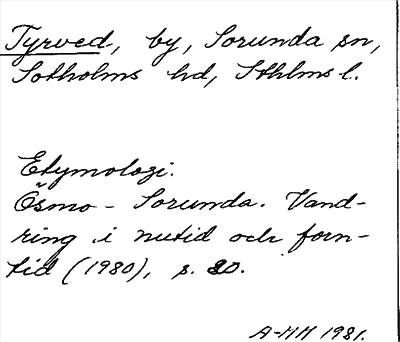 Tyrved, by, Sorunda sn,
Sotholms hd, Sthlms l.
Etymologi.
Ösmo - Sorunda. Vand-
ring i nutid och forn-
tid (1980), s. 20.
A-MH 1981.